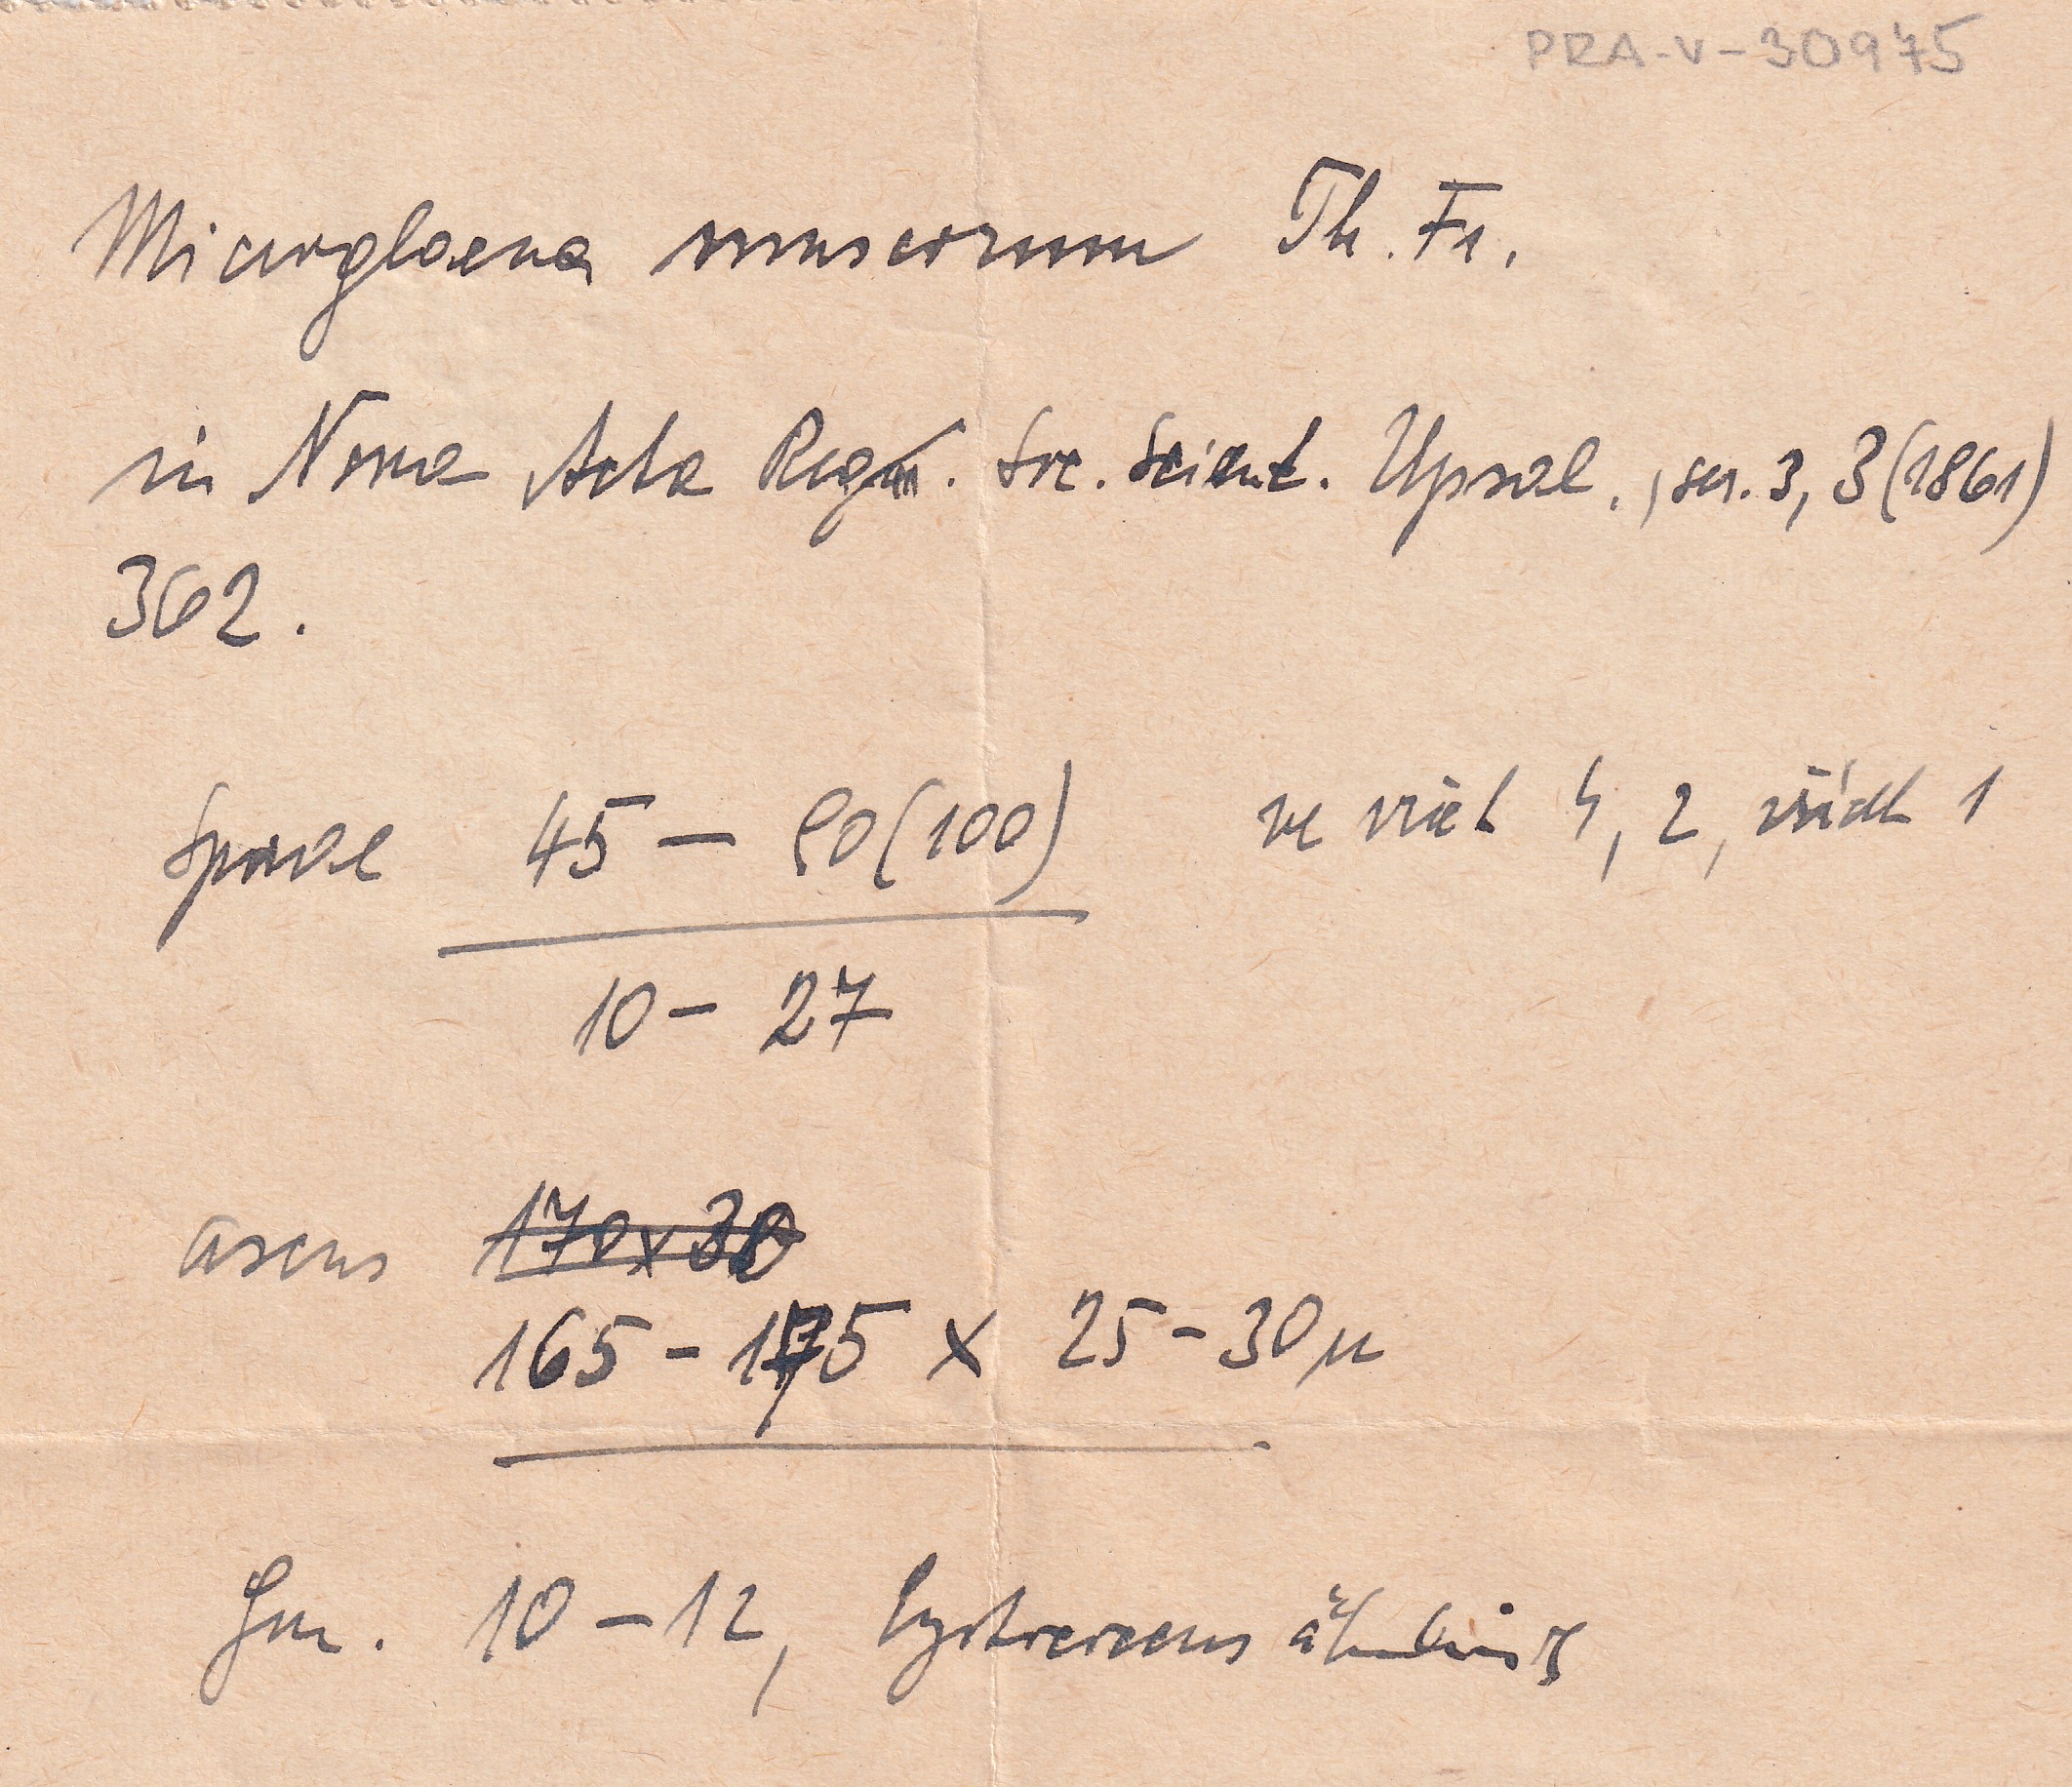 PRA-V-30975
Microglaena muscorum Th. Fr.
in Nova Acta Reg. Soc. Scient. Upsal., ser. 3, 3 (1861)
362.
Sporae 45 – 80 (100) ve vřec. 4, 2, zřídk. 1
10 – 27
ascus 170 x 30
165 – 175 x 25 – 30 µ
Gon. 10 – 12,